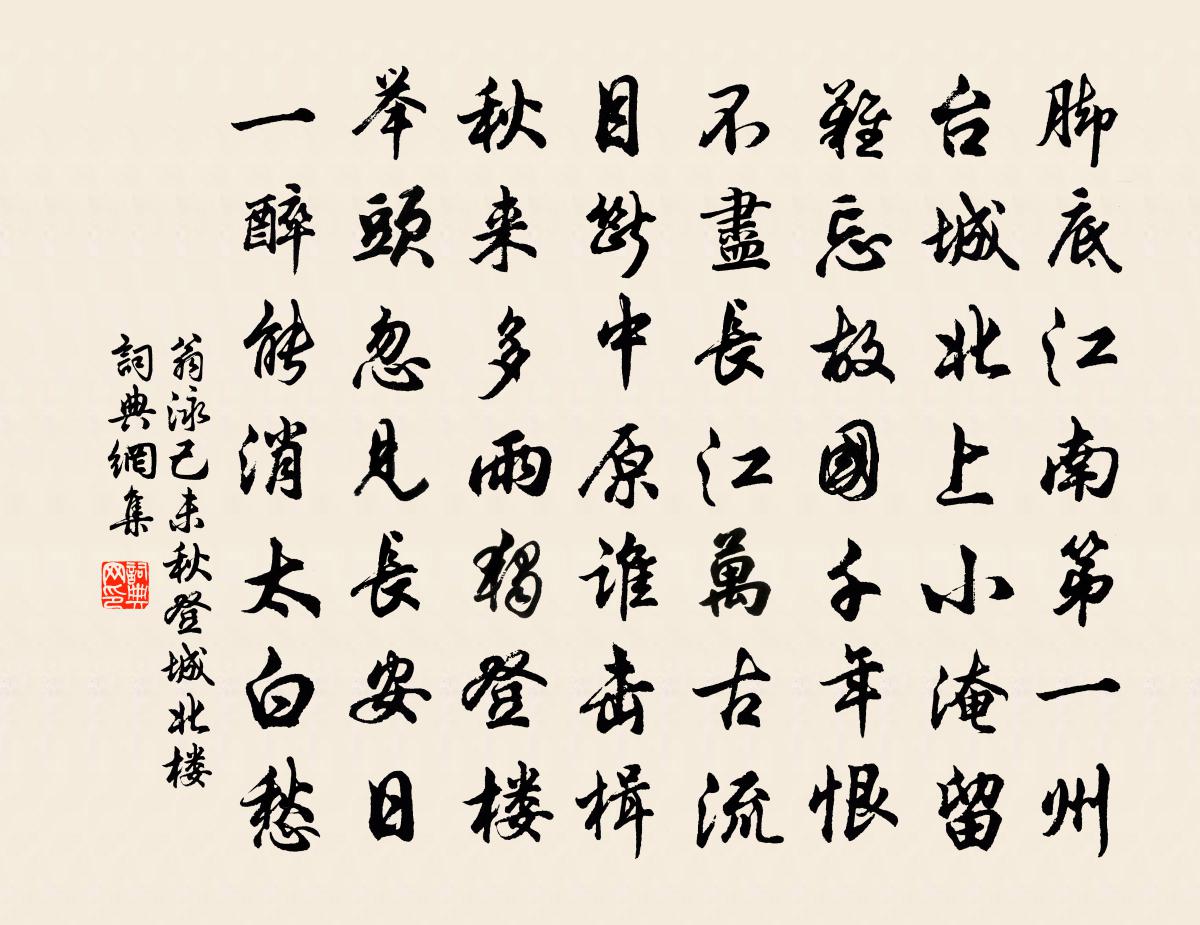 脚底江南第一州
台城北上小淹留
難忘故國千年恨
不盡長江萬古流
目斷中原誰擊楫
秋来多雨獨登楼
举頭忽見長安日
一醉能消太白愁
翁泳己未秋登城北楼
詞典網集
詞典网印